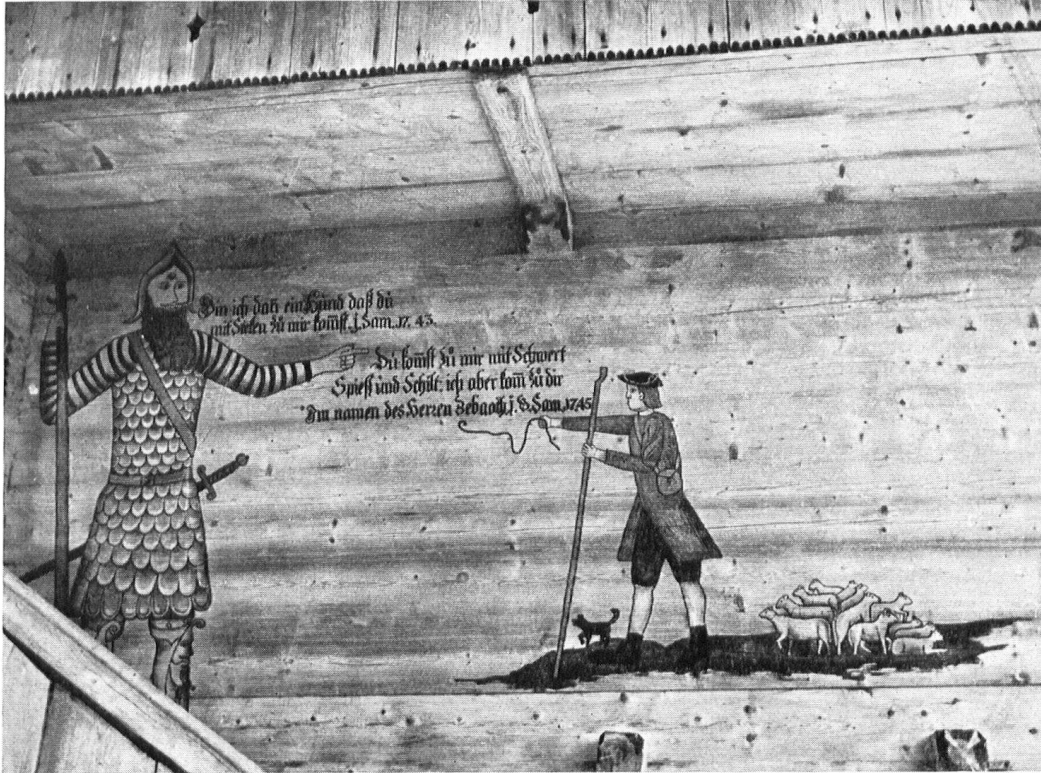 Bin ich dañ ein Hund daß du
mit Steken zů mir kom̃st. j. Sam. 17. 43.
Du kom̃st zů mir mit Schwert
Spiest und Schilt: ich aber kom̃ zů dir
Im namen des Herren Zebaoth. j. B. Sam. 17.45